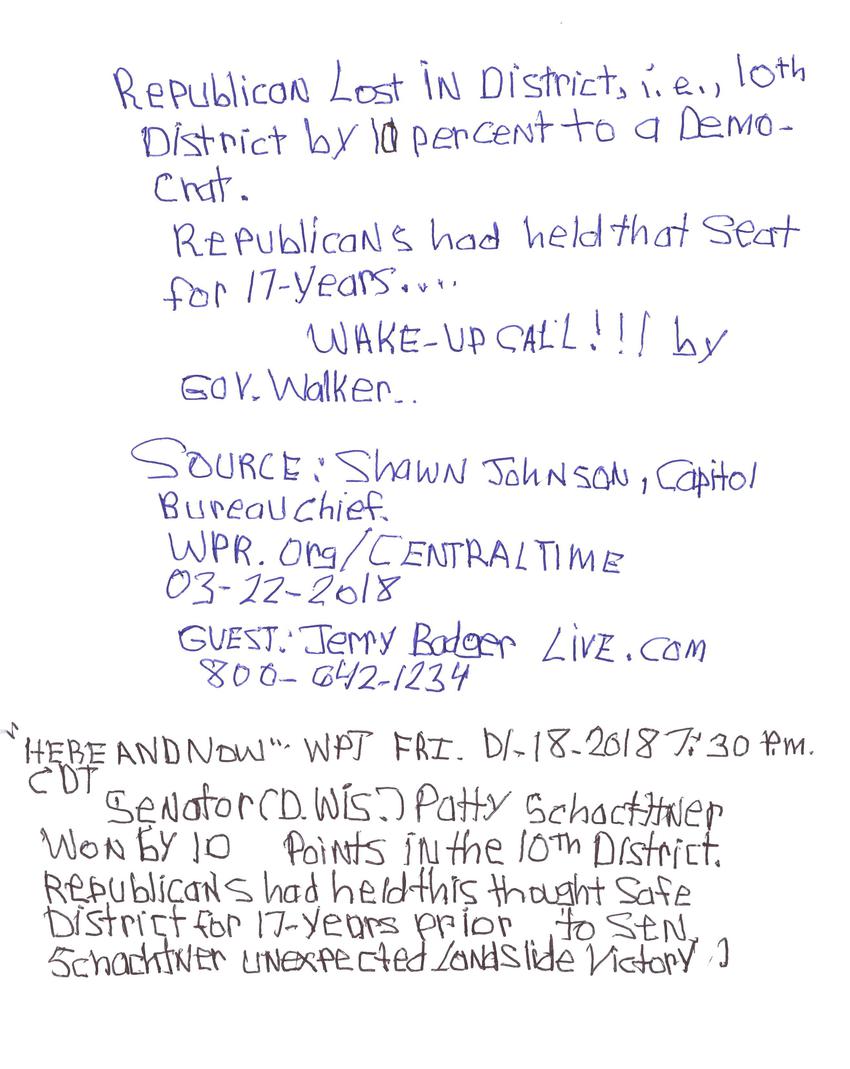 Republican Lost in District, i.e., 10th
District by 10 percent to a Demo-
crat.
Republicans had held that Seat
for 17-years.....
WAKE-UP CALL!!! by
Gov. Walker..
SOURCE: Shawn Johnson, Capitol
Bureau Chief.
WPR.Org/CENTRALTIME
03-22-2018
GUEST: Jerry Bader LIVE.com
800-642-1234
"HERE AND NOW" WPT FRI. 01-18-2018 7:30 P.m.
CDT
Senator (D. Wis.) Patty Schachtner
Won by 10 Points in the 10th District.
Republicans had held this thought Safe
District for 17-years prior to Sen.
Schachtner unexpected landslide Victory.]